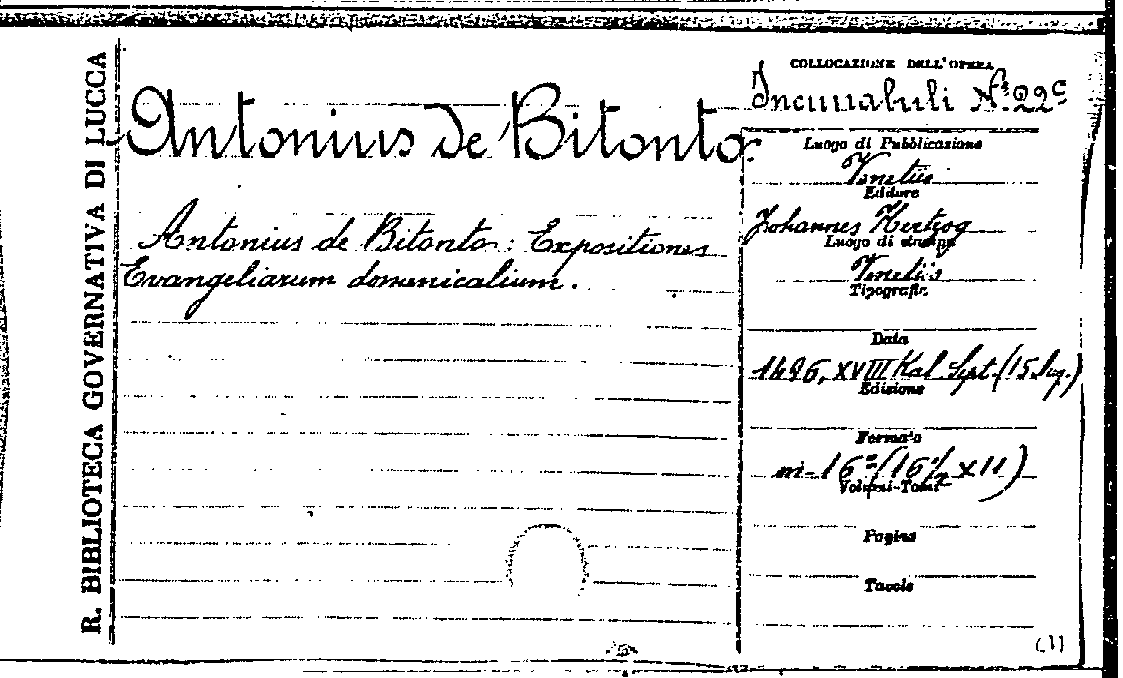 R. BIBLIOTECA GOVERNATIVA DI LUCCA
Antonius de Bitonto.
Antonius de Bitonto: Expositiones
Evangeliarum domenicalium.
COLLOCAZIONE DELL'OPERA
Incunabuli N° 22c
Luogo di Pubblicazione
Venetiis
Editore
Johannes Hertzog
Luogo di stampa
Venetiis
Tipografia
Data
1496, XVIII Kal. Sept. (15 Aug.)
Edizione
Formato
in-16° (16½ x 11)
Volumi-Tomi
Pagine
Tavole
(1)